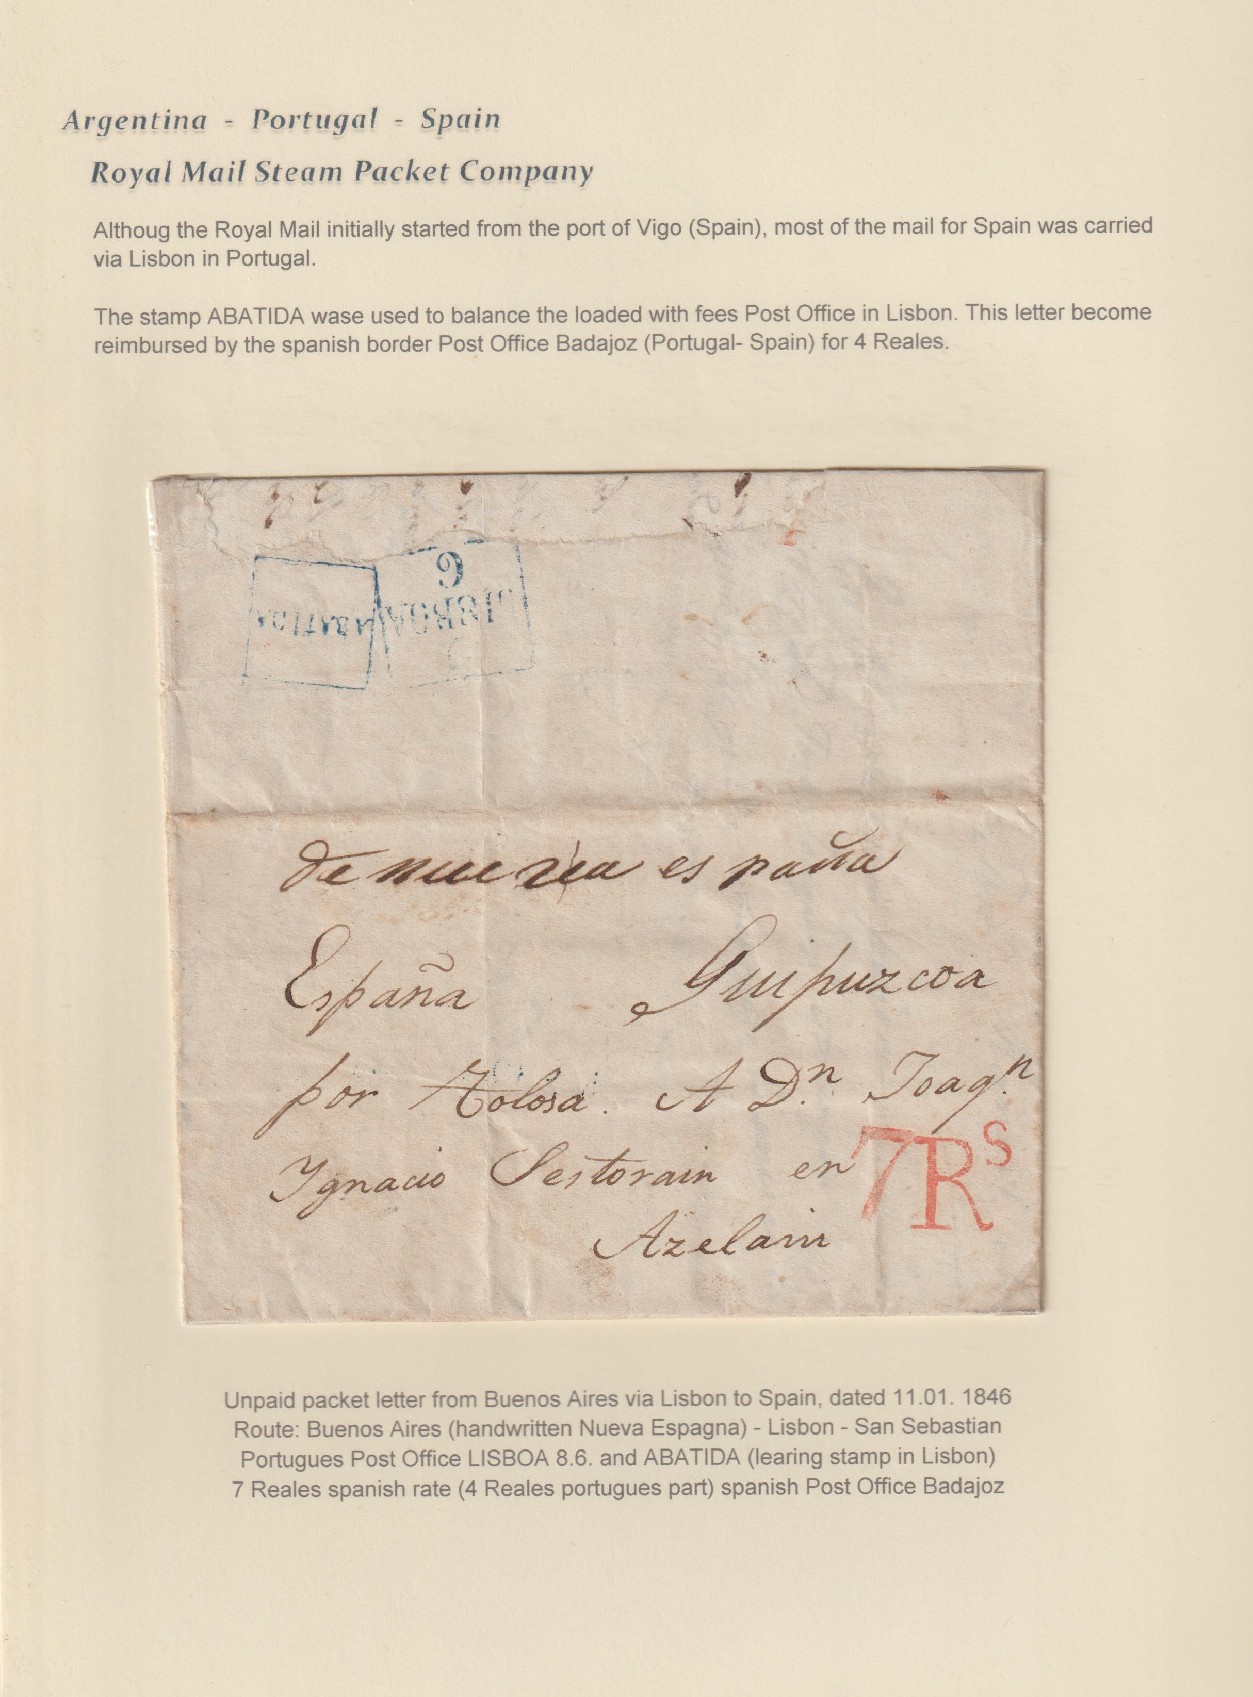 Argentina - Portugal - Spain
Royal Mail Steam Packet Company
Althoug the Royal Mail initially started from the port of Vigo (Spain), most of the mail for Spain was carried
via Lisbon in Portugal.
The stamp ABATIDA wase used to balance the loaded with fees Post Office in Lisbon. This letter become
reimbursed by the spanish border Post Office Badajoz (Portugal- Spain) for 4 Reales.
ABATIDA
LISBOA
de nueva españa
España Guipuzcoa
por Tolosa. A Dn. Joaqn.
Ignacio Sestorain en
7Rs
Azelain
Unpaid packet letter from Buenos Aires via Lisbon to Spain, dated 11.01. 1846
Route: Buenos Aires (handwritten Nueva Espagna) - Lisbon - San Sebastian
Portugues Post Office LISBOA 8.6. and ABATIDA (learing stamp in Lisbon)
7 Reales spanish rate (4 Reales portugues part) spanish Post Office Badajoz